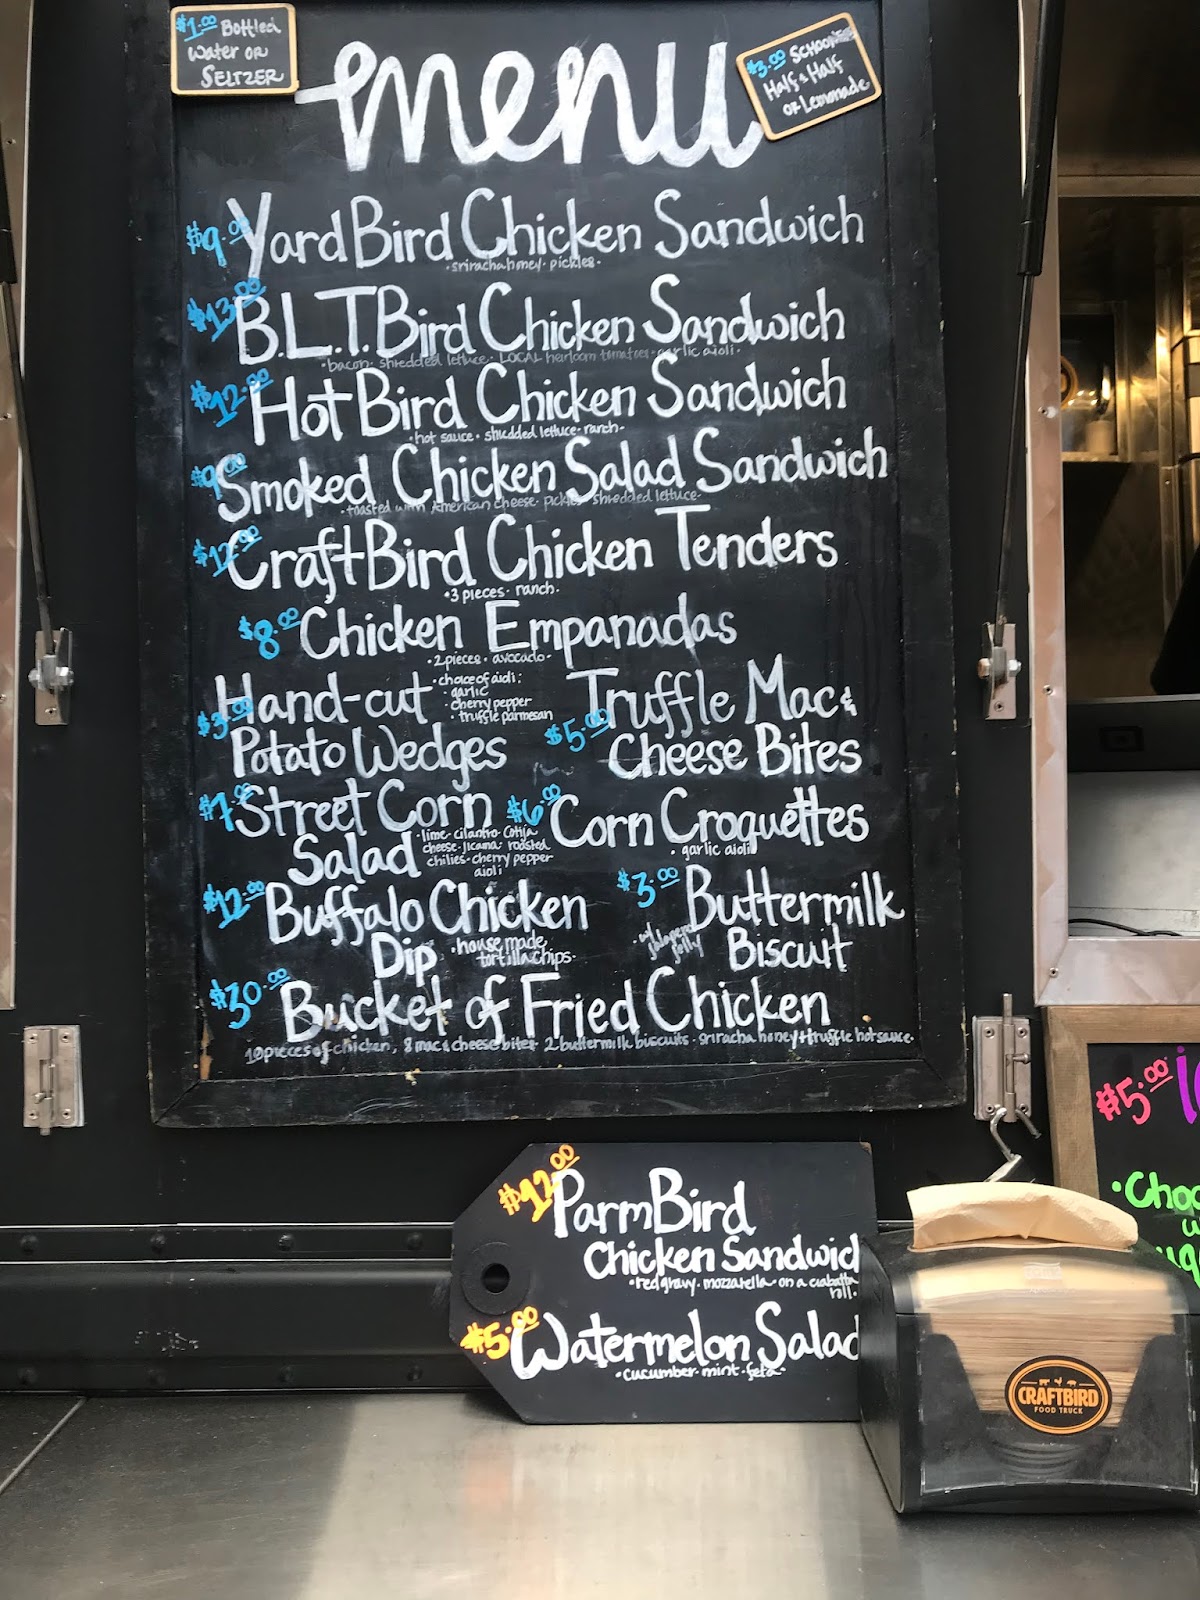 $1.00 Bottled
Water OR
SELTZER
menu
$3.00 SCHOONERS
Half & Half
OR Lemonade
$9.00 YardBird Chicken Sandwich
• sriracha honey • pickles •
$13.00 B.L.T. Bird Chicken Sandwich
• bacon • shredded lettuce • LOCAL heirloom tomatoes • garlic aioli •
$12.00 Hot Bird Chicken Sandwich
• hot sauce • shredded lettuce • ranch •
$9.00 Smoked Chicken Salad Sandwich
• toasted with American cheese • pickles • shredded lettuce •
$12.00 CraftBird Chicken Tenders
• 3 pieces • ranch •
$8.00 Chicken Empanadas
• 2 pieces • avocado •
$3.00 Hand-cut
Potato Wedges
• choice of aioli:
• garlic
• cherry pepper
• truffle parmesan
$5.00 Truffle Mac &
Cheese Bites
$7.00 Street Corn
Salad
lime • cilantro • Cotija
cheese • jicama • roasted
chilies • cherry pepper
aioli
$6.00 Corn Croquettes
• garlic aioli
$12.00 Buffalo Chicken
Dip
• house made
tortilla chips •
$3.00 Buttermilk
Biscuit
• w/
Jalapeno
Jelly
$30.00 Bucket of Fried Chicken
10 pieces of chicken, 8 mac & cheese bites • 2 buttermilk biscuits • sriracha honey + truffle hot sauce •
$12.00 ParmBird
Chicken Sandwic
• red gravy • mozzarella • on a ciabatta
roll •
$5.00 Watermelon Salad
• cucumber • mint • feta •
$5.00
CRAFTBIRD
FOOD TRUCK